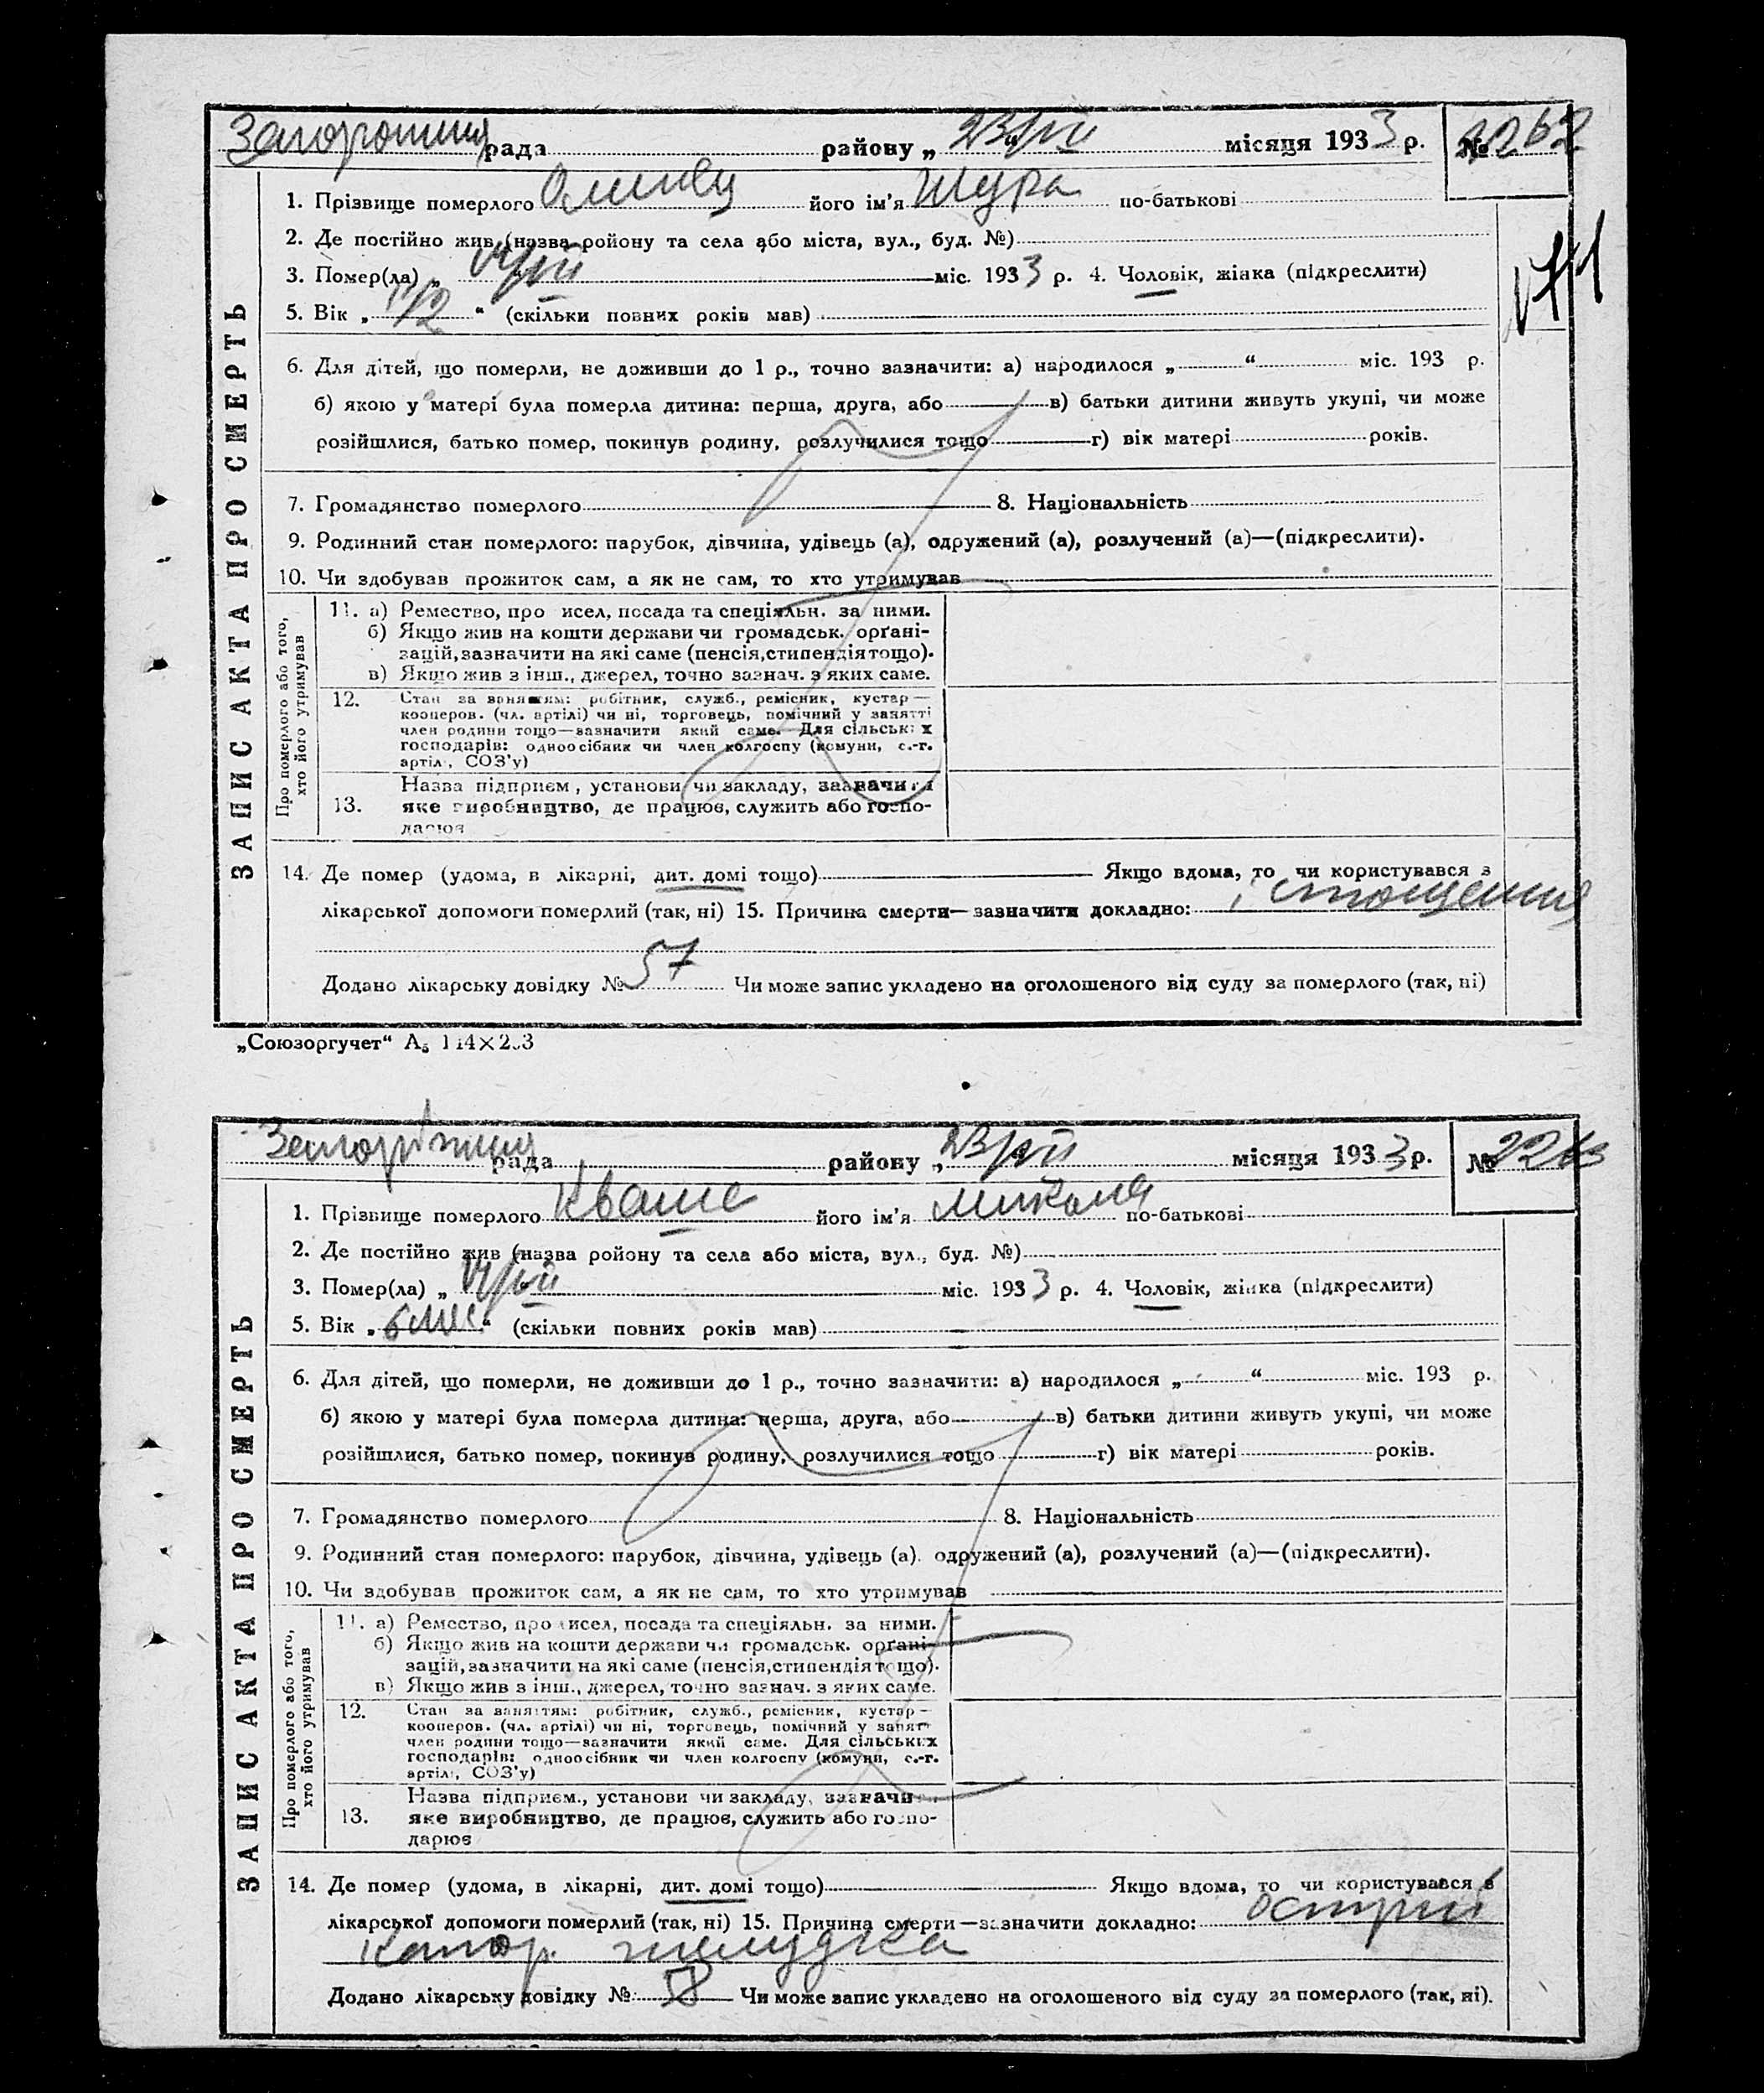 рада району „ місяця 1933 р. № 2262
1. Прізвище померлого його ім'я Шура по-батькові
2. Де постійно жив (назва ройону та села або міста, вул., буд. №)
3. Помер(ла) „ міс. 1933 р. 4. Чоловік, жінка (підкреслити)
5. Вік „ 1 1/2 “ (скільки повних років мав)
6. Для дітей, що померли, не доживши до 1 р., точно зазначити: а) народилося „ “ міс. 193 р.
б) якою у матері була померла дитина: перша, друга, або в) батьки дитини живуть укупі, чи може
розійшлися, батько помер, покинув родину, розлучилися тощо г) вік матері років.
7. Громадянство померлого 8. Національність
9. Родинний стан померлого: парубок, дівчина, удівець (а), одружений (а), розлучений (а)—(підкреслити).
10. Чи здобував прожиток сам, а як не сам, то хто утримував
ЗАПИС АКТА ПРО СМЕРТЬ
Про померлого або того, хто його утримував
11. а) Ремество, про исел, посада та спеціяльн. за ними.
б) Якщо жив на кошти держави чи громадськ. орґані-
зацій, зазначити на які саме (пенсія, стипендія тощо).
в) Якщо жив з інш., джерел, точно зазнач. з яких саме.
12. Стан за заняттям: робітник, служб., ремісник, кустар—
кооперов. (чл. артілі) чи ні, торговець, помічний у занятті
член родини тощо—зазначити який саме. Для сільських
господарів: одноосібник чи член колгоспу (комуни, с.-г.
артіл., СОЗ'у)
13. Назва підприєм., установи чи закладу, зазначити
яке виробництво, де працює, служить або госпо-
дарює
14. Де помер (удома, в лікарні, дит. домі тощо) Якщо вдома, то чи користувався з
лікарської допомоги померлий (так, ні) 15. Причина смерти—зазначити докладно: істощение
Додано лікарську довідку № 57 Чи може запис укладено на оголошеного від суду за померлого (так, ні)
„Союзоргучет“ А5 114×203
рада району „ місяця 1933 р. № 2263
1. Прізвище померлого Кваше його ім'я Микола по-батькові
2. Де постійно жив (назва ройону та села або міста, вул., буд. №)
3. Помер(ла) „ міс. 1933 р. 4. Чоловік, жінка (підкреслити)
5. Вік „ 6 міс “ (скільки повних років мав)
6. Для дітей, що померли, не доживши до 1 р., точно зазначити: а) народилося „ “ міс. 193 р.
б) якою у матері була померла дитина: перша, друга, або в) батьки дитини живуть укупі, чи може
розійшлися, батько помер, покинув родину, розлучилися тощо г) вік матері років.
7. Громадянство померлого 8. Національність
9. Родинний стан померлого: парубок, дівчина, удівець (а), одружений (а), розлучений (а)—(підкреслити).
10. Чи здобував прожиток сам, а як не сам, то хто утримував
ЗАПИС АКТА ПРО СМЕРТЬ
Про померлого або того, хто його утримував
11. а) Ремество, про исел, посада та спеціяльн. за ними.
б) Якщо жив на кошти держави чи громадськ. орґані-
зацій, зазначити на які саме (пенсія, стипендія тощо).
в) Якщо жив з інш., джерел, точно зазнач. з яких саме.
12. Стан за заняттям: робітник, служб., ремісник, кустар—
кооперов. (чл. артілі) чи ні, торговець, помічний у занят
член родини тощо—зазначити який саме. Для сільських
господарів: одноосібник чи член колгоспу (комуни, с.-г.
артіл., СОЗ'у)
13. Назва підприєм., установи чи закладу, зазначи
яке виробництво, де працює, служить або госпо-
дарює
14. Де помер (удома, в лікарні, дит. домі тощо) Якщо вдома, то чи користувався з
лікарської допомоги померлий (так, ні) 15. Причина смерти—зазначити докладно: острий
катар. желудка
Додано лікарську довідку № 58 Чи може запис укладено на оголошеного від суду за померлого (так, ні).